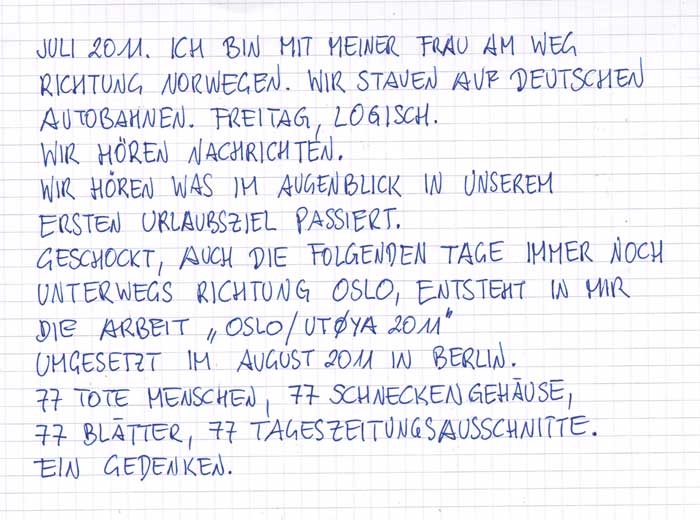 JULI 2011. ICH BIN MIT MEINER FRAU AM WEG
RICHTUNG NORWEGEN. WIR STAUEN AUF DEUTSCHEN
AUTOBAHNEN. FREITAG, LOGISCH.
WIR HÖREN NACHRICHTEN.
WIR HÖREN WAS IM AUGENBLICK IN UNSEREM
ERSTEN URLAUBSZIEL PASSIERT.
GESCHOCKT, AUCH DIE FOLGENDEN TAGE IMMER NOCH
UNTERWEGS RICHTUNG OSLO, ENTSTEHT IN MIR
DIE ARBEIT „OSLO/UTØYA 2011"
UMGESETZT IM AUGUST 2011 IN BERLIN.
77 TOTE MENSCHEN, 77 SCHNECKENGEHÄUSE,
77 BLÄTTER, 77 TAGESZEITUNGSAUSSCHNITTE.
EIN GEDENKEN.